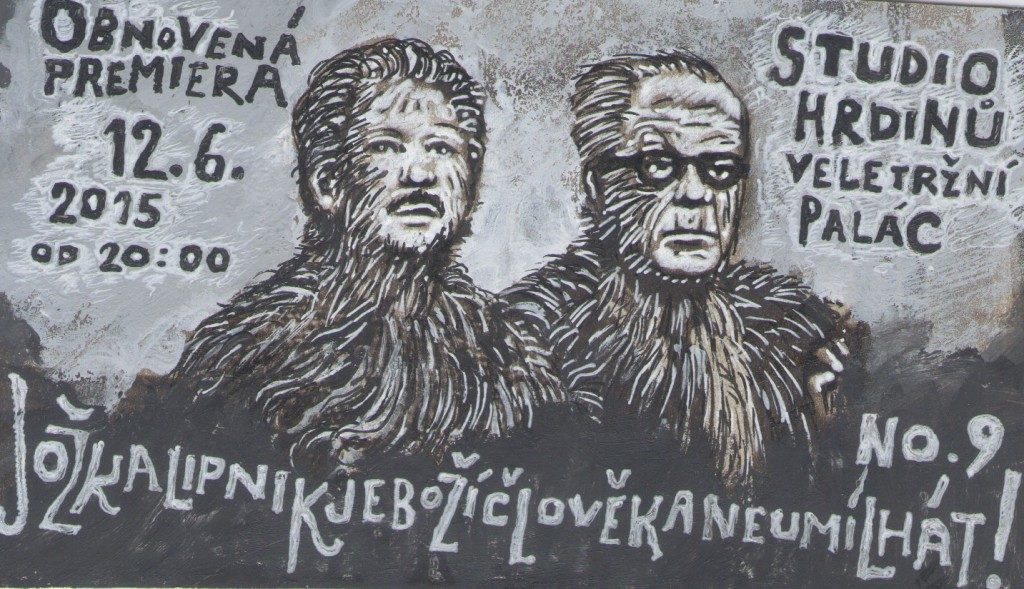 OBNOVENÁ
PREMIERA
12.6.
2015
OD 20:00
STUDIO
HRDINŮ
VELETRŽNÍ
PALÁC
NO.9
JOŽKALIPNIKJEBOŽÍČLOVĚKANEUMÍLHÁT!